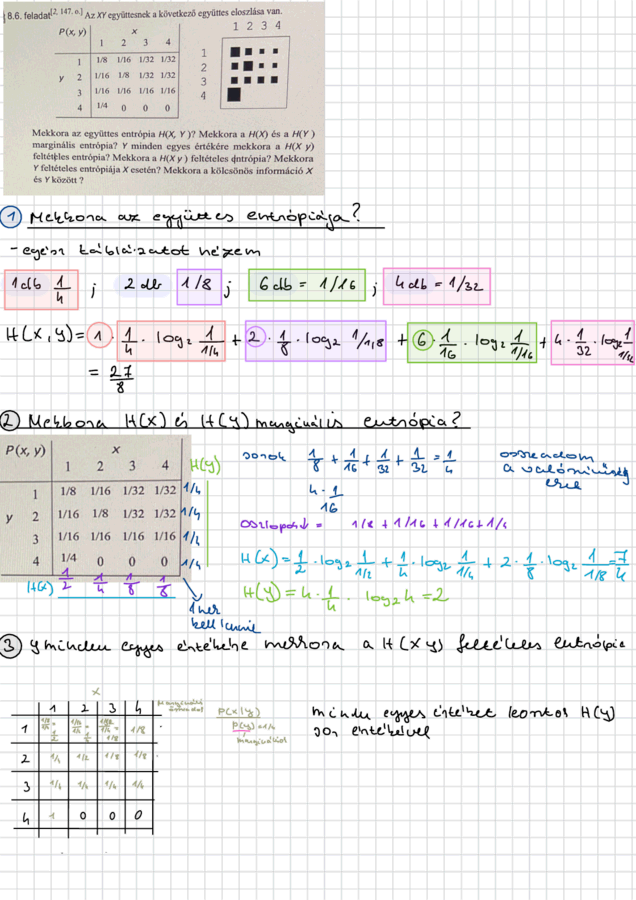 8.6. feladat[2, 147. o.] Az XY együttesnek a következő együttes eloszlása van.
P(x, y) x
1 2 3 4
1 1/8 1/16 1/32 1/32
y 2 1/16 1/8 1/32 1/32
3 1/16 1/16 1/16 1/16
4 1/4 0 0 0
1 2 3 4
1
2
3
4
Mekkora az együttes entrópia H(X, Y)? Mekkora a H(X) és a H(Y)
marginális entrópia? Y minden egyes értékére mekkora a H(X y)
feltételes entrópia? Mekkora a H(X y) feltételes entrópia? Mekkora
Y feltételes entrópiája X esetén? Mekkora a kölcsönös információ X
és Y között ?
① Mekkora az együttes entrópiája?
- egész táblázatot nézem
1db 1/4 ; 2 db 1/8 ; 6db = 1/16 ; 4db = 1/32
H(X,Y) = 1 · 1/4 · log₂ 1/1/4 + 2 · 1/8 · log₂ 1/1,8 + 6 · 1/16 · log₂ 1/1/16 + 4 · 1/32 · log₂ 1/1/32
= 27/8
② Mekkora H(X) és H(Y) marginális entrópia?
P(x, y) x
1 2 3 4 H(Y)
1 1/8 1/16 1/32 1/32 1/4
y 2 1/16 1/8 1/32 1/32 1/4
3 1/16 1/16 1/16 1/16 1/4
4 1/4 0 0 0 1/4
H(X) 1/2 1/4 1/8 1/8
1nek kell lennie
sorok 1/8 + 1/16 + 1/32 + 1/32 = 1/4
4 · 1/16
összeadom
a valószínűség
eket
oszlopok↓ = 1/8 + 1/16 + 1/16 + 1/4
H(X) = 1/2 · log₂ 1/1/2 + 1/4 · log₂ 1/1/4 + 2 · 1/8 · log₂ 1/1/8 = 7/4
H(Y) = 4 · 1/4 · log₂ 4 = 2
③ Y minden egyes értékére mekkora a H(X y) feltételes entrópia
X
1 2 3 4
1 1/8/1/4 = 1/2 1/16/1/4 = 1/4 1/32/1/4 = 1/8 1/8
2 1/4 1/2 1/8 1/8
3 1/4 1/4 1/4 1/4
4 1 0 0 0
P(x|y)
P(y) = 1/4
marginális
minden egyes értéket leosztok H(Y)
sor értékével